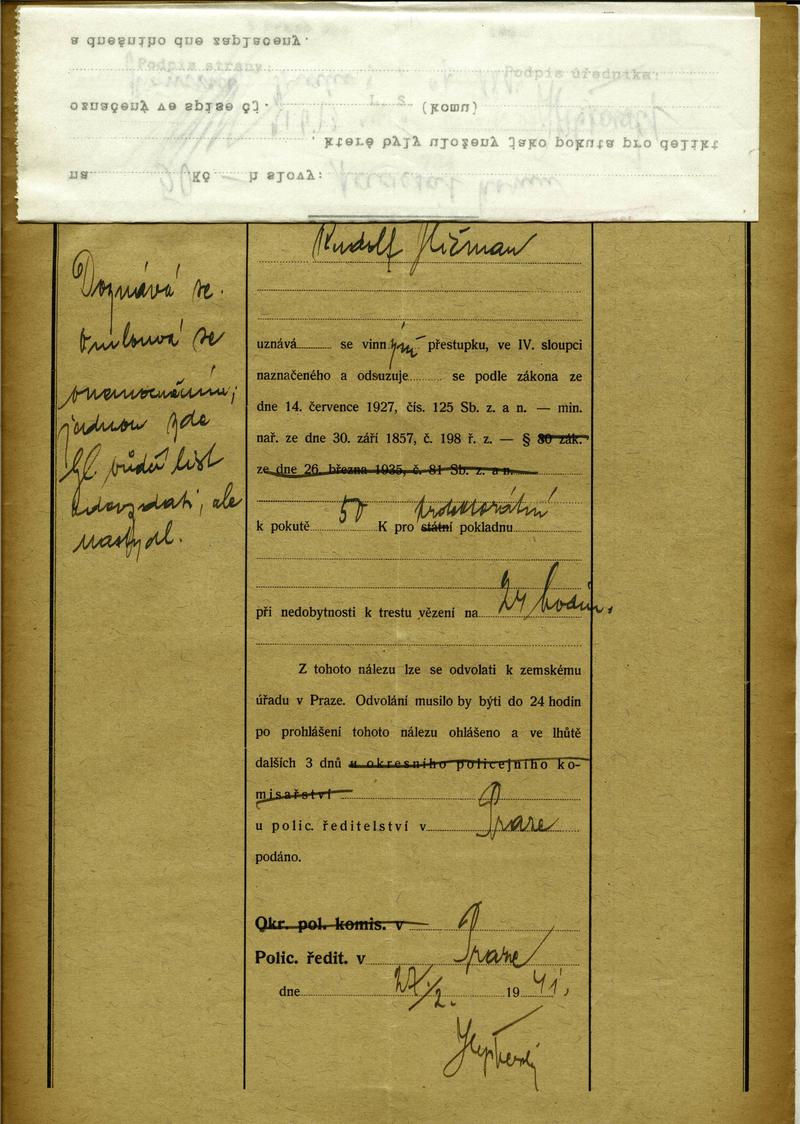 a dnešního dne zaplaceny.
Podpis strany:
Podpis úředníka:
označený ve spise čj.
L. S.
(komu)
které byly uloženy jako pokuta pro delikt
na 50 Kč h slovy:
Rudolf
Doznává se.
Omlouvá se
onemocněním;
jednou zde
list
odevzdati, ale
nastydl.
uznává se vinným přestupku, ve IV. sloupci
naznačeného a odsuzuje se podle zákona ze
dne 14. července 1927, čís. 125 Sb. z. a n. — min.
nař. ze dne 30. září 1857, č. 198 ř. z. — § 80 zák.
ze dne 26. března 1935, č. 81 Sb. z. a n.
protektorátní
k pokutě 50 K pro státní pokladnu
při nedobytnosti k trestu vězení na 24 hodin.
Z tohoto nálezu lze se odvolati k zemskému
úřadu v Praze. Odvolání musilo by býti do 24 hodin
po prohlášení tohoto nálezu ohlášeno a ve lhůtě
dalších 3 dnů u okresního policejního ko-
misařství
u polic. ředitelství v Praze
podáno.
Okr. pol. komis. v
Polic. ředit. v Praze
dne 27/2. 1941.